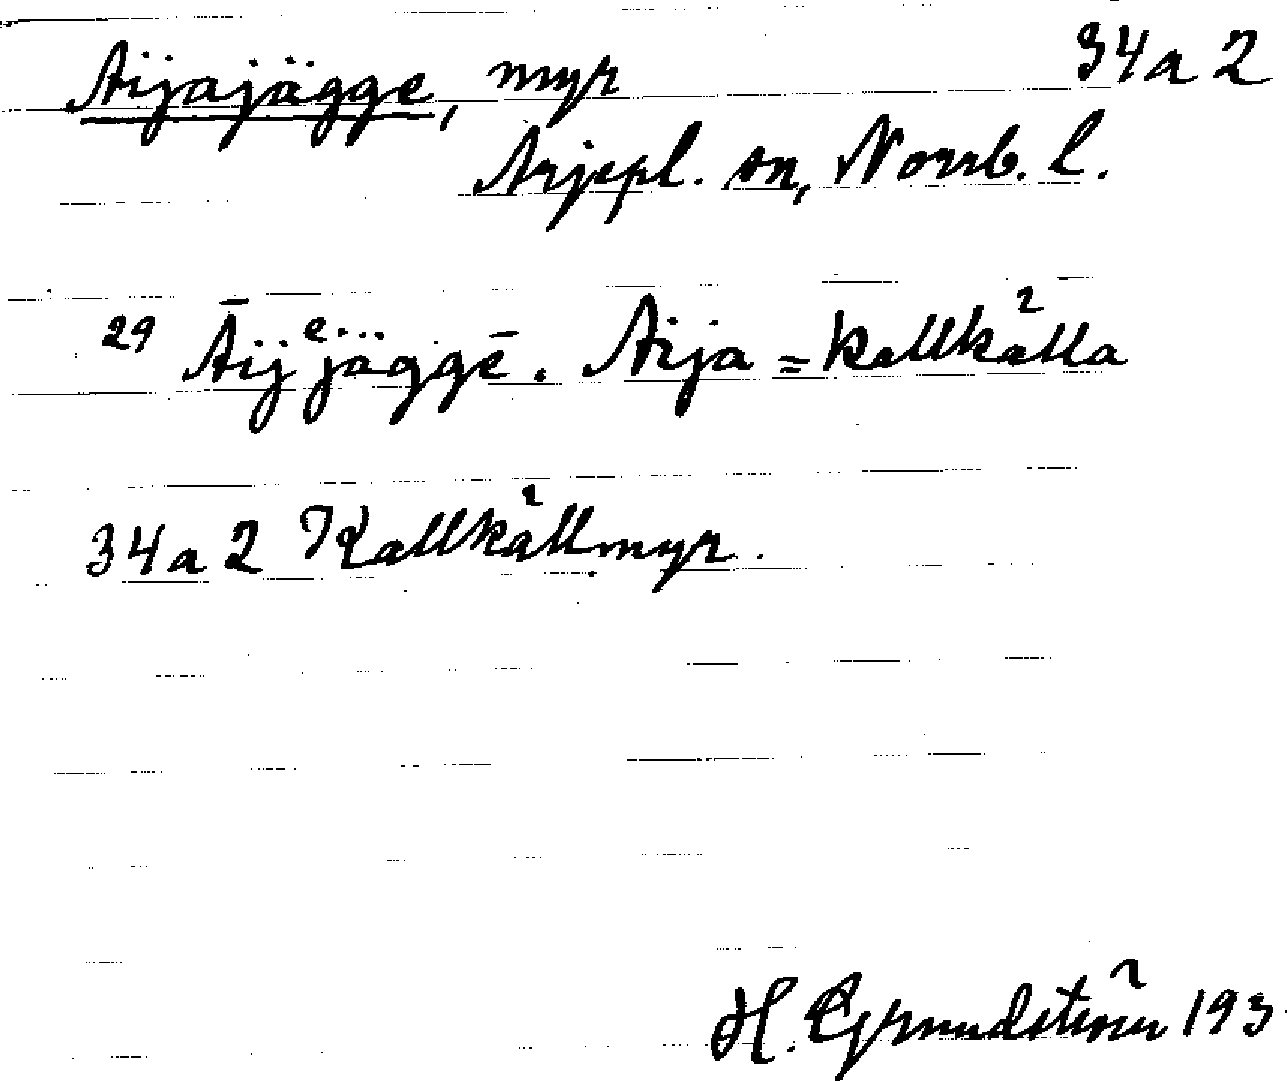 Aijajägge, myr 34a2
Arjepl. sn, Norrb. l.
29 Āijᵉjäggē. Aija = kallkälla
34a2 Kallkällmyr.
H. Grundström 193